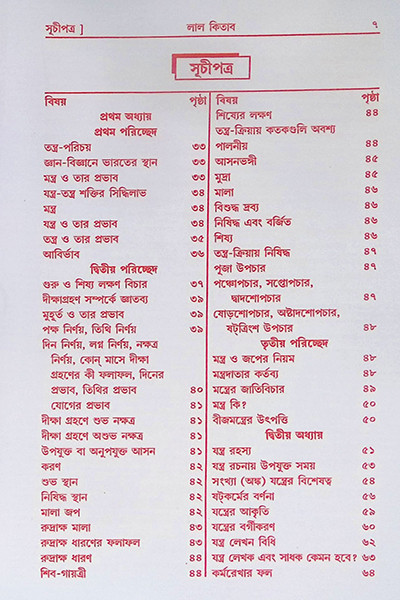 সূচীপত্র ]
লাল কিতাব
৭
সূচীপত্র
বিষয় পৃষ্ঠা
প্রথম অধ্যায়
প্রথম পরিচ্ছেদ
তন্ত্র-পরিচয় ৩৩
জ্ঞান-বিজ্ঞানে ভারতের স্থান ৩৩
মন্ত্র ও তার প্রভাব ৩৩
যন্ত্র-তন্ত্র শক্তির সিদ্ধিলাভ ৩৪
মন্ত্র ৩৪
যন্ত্র ও তার প্রভাব ৩৪
তন্ত্র ও তার প্রভাব ৩৫
আবির্ভাব ৩৬
দ্বিতীয় পরিচ্ছেদ
গুরু ও শিষ্য লক্ষণ বিচার ৩৭
দীক্ষাগ্রহণ সম্পর্কে জ্ঞাতব্য ৩৯
মুহূর্ত ও তার প্রভাব ৩৯
পক্ষ নির্ণয়, তিথি নির্ণয় ৩৯
দিন নির্ণয়, লগ্ন নির্ণয়, নক্ষত্র
নির্ণয়, কোন্ মাসে দীক্ষা
গ্রহণের কী ফলাফল, দিনের
প্রভাব, তিথির প্রভাব ৪০
যোগের প্রভাব ৪১
দীক্ষা গ্রহণে শুভ নক্ষত্র ৪১
দীক্ষা গ্রহণে অশুভ নক্ষত্র ৪১
উপযুক্ত বা অনুপযুক্ত আসন ৪১
করণ ৪২
শুভ স্থান ৪২
নিষিদ্ধ স্থান ৪২
মালা জপ ৪২
রুদ্রাক্ষ মালা ৪৩
রুদ্রাক্ষ ধারণের ফলাফল ৪৩
রুদ্রাক্ষ ধারণ ৪৪
শিব-গায়ত্রী ৪৪
বিষয় পৃষ্ঠা
শিষ্যের লক্ষণ ৪৪
তন্ত্র-ক্রিয়ায় কতকগুলি অবশ্য
পালনীয় ৪৪
আসনভঙ্গী ৪৫
মুদ্রা ৪৫
মালা ৪৬
বিশুদ্ধ দ্রব্য ৪৬
নিষিদ্ধ এবং বর্জিত ৪৬
শিষ্য ৪৬
তন্ত্র-ক্রিয়ায় নিষিদ্ধ ৪৭
পূজা উপচার ৪৭
পঞ্চোপচার, সপ্তোপচার,
দ্বাদশোপচার ৪৭
ষোড়শোপচার, অষ্টাদশোপচার,
ষট্‌ত্রিংশ উপচার ৪৮
তৃতীয় পরিচ্ছেদ
মন্ত্র ও জপের নিয়ম ৪৮
মন্ত্রদাতার কর্তব্য ৪৮
মন্ত্রের জাতিবিচার ৪৯
মন্ত্র কি? ৫০
বীজমন্ত্রের উৎপত্তি ৫০
দ্বিতীয় অধ্যায়
যন্ত্র রহস্য ৫১
যন্ত্র রচনায় উপযুক্ত সময় ৫৩
সংখ্যা (অঙ্ক) যন্ত্রের বিশেষত্ব ৫৪
ষট্‌কর্মের বর্ণনা ৫৬
যন্ত্রের আকৃতি ৫৯
যন্ত্রের বর্গীকরণ ৬০
যন্ত্র লেখন বিধি ৬২
যন্ত্র লেখক এবং সাধক কেমন হবে? ৬৩
কর্মরেখার ফল ৬৪